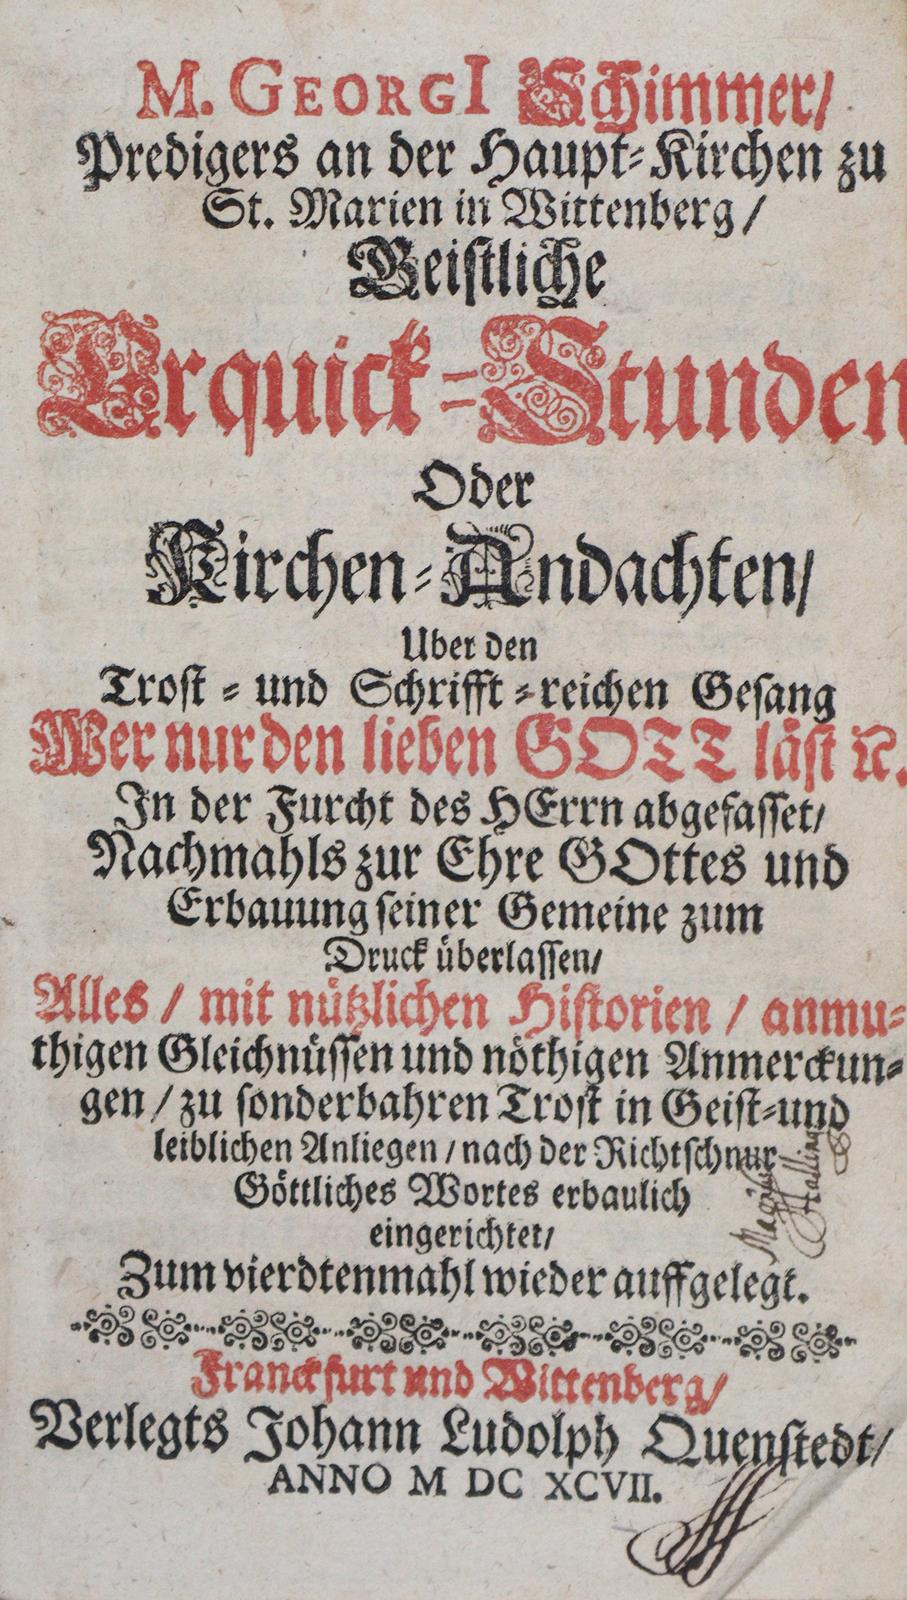 M. GEORGI Schimmer/
Predigers an der Haupt-Kirchen zu
St. Marien in Wittenberg/
Geistliche
Erquick-Stunden
Oder
Kirchen-Andachten/
Uber den
Trost- und Schrifft-reichen Gesang
Wer nur den lieben GOTT läst ꝛc.
In der Furcht des HErrn abgefasset/
Nachmahls zur Ehre GOttes und
Erbauung seiner Gemeine zum
Druck überlassen/
Alles / mit nützlichen Historien / anmu-
thigen Gleichnüssen und nöthigen Anmerckun-
gen / zu sonderbahren Trost in Geist- und
leiblichen Anliegen / nach der Richtschnur
Göttliches Wortes erbaulich
eingerichtet/
Zum vierdtenmahl wieder auffgelegt.
Franckfurt und Wittenberg/
Verlegts Johann Ludolph Quenstedt/
ANNO M DC XCVII.